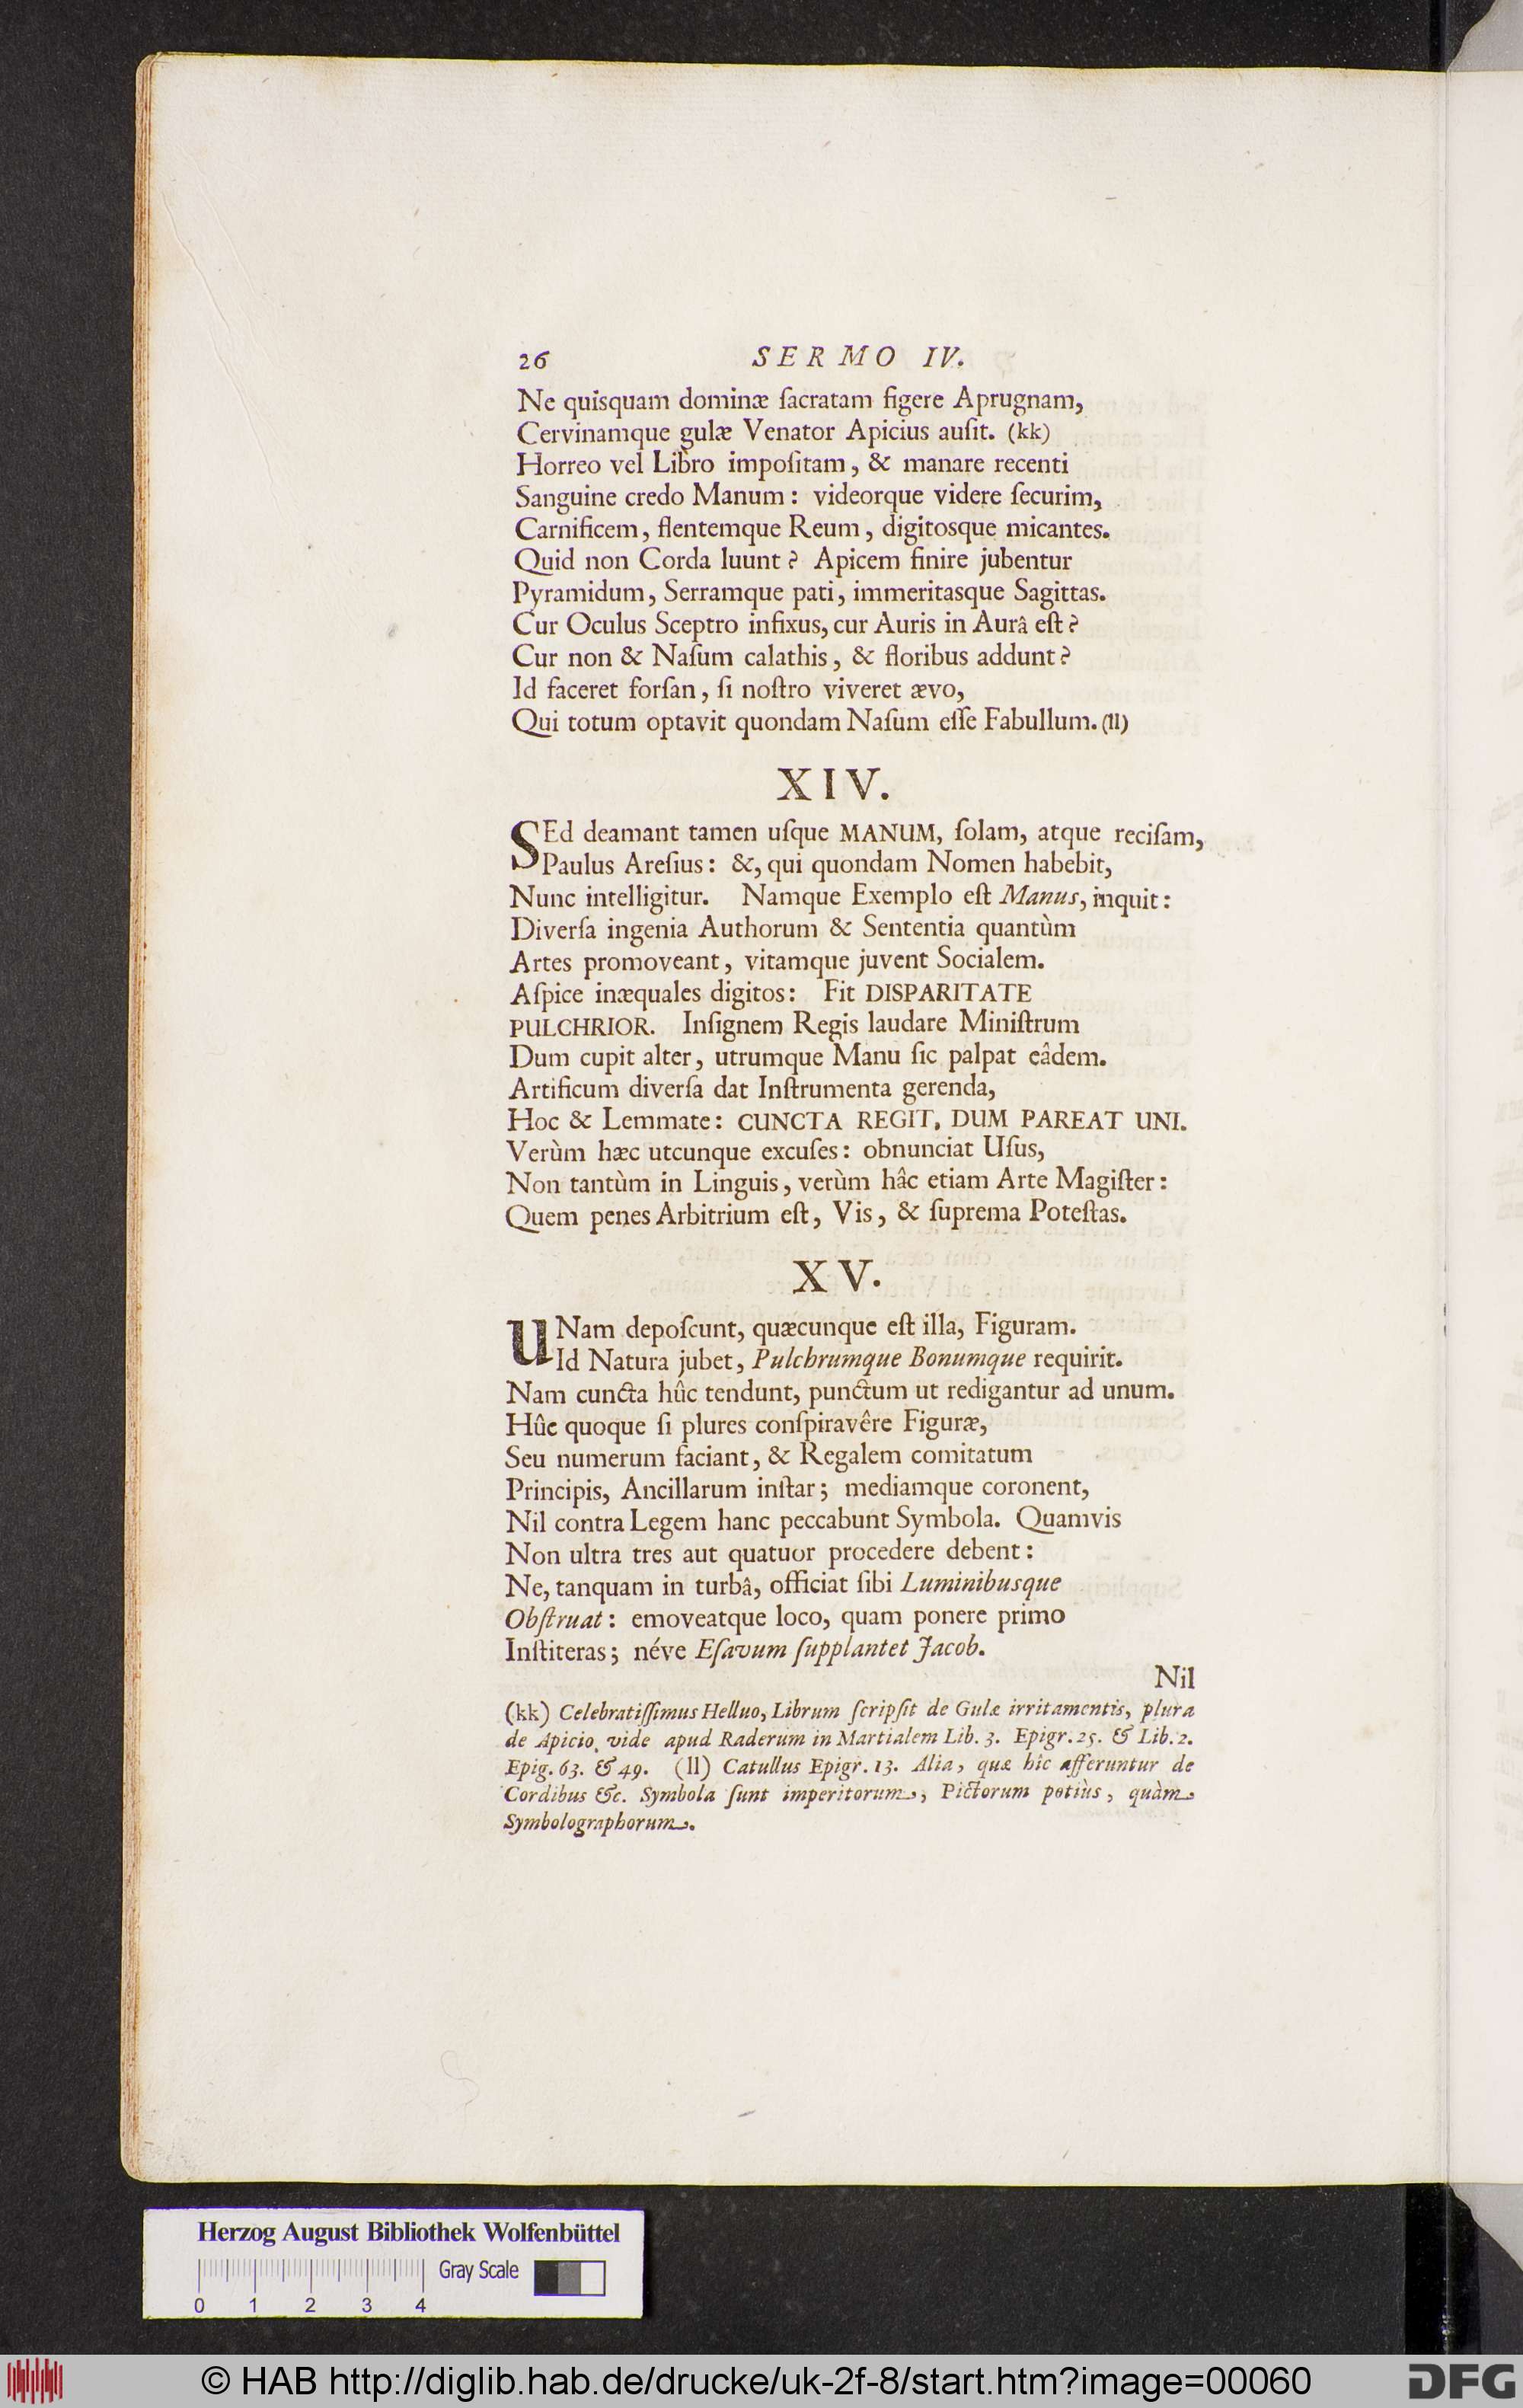 26 SERMO IV.
Ne quisquam dominæ ſacratam figere Aprugnam,
Cervinamque gulæ Venator Apicius auſit. (kk)
Horreo vel Libro impoſitam, & manare recenti
Sanguine credo Manum: videorque videre ſecurim,
Carnificem, flentemque Reum, digitosque micantes.
Quid non Corda luunt? Apicem finire jubentur
Pyramidum, Serramque pati, immeritasque Sagittas.
Cur Oculus Sceptro infixus, cur Auris in Aurâ eſt?
Cur non & Naſum calathis, & floribus addunt?
Id faceret forſan, ſi noſtro viveret ævo,
Qui totum optavit quondam Naſum eſſe Fabullum. (ll)
XIV.
SEd deamant tamen uſque MANUM, ſolam, atque reciſam,
Paulus Areſius: &, qui quondam Nomen habebit,
Nunc intelligitur. Namque Exemplo eſt Manus, inquit:
Diverſa ingenia Authorum & Sententia quantùm
Artes promoveant, vitamque juvent Socialem.
Aſpice inæquales digitos: Fit DISPARITATE
PULCHRIOR. Inſignem Regis laudare Miniſtrum
Dum cupit alter, utrumque Manu ſic palpat eâdem.
Artificum diverſa dat Inſtrumenta gerenda,
Hoc & Lemmate: CUNCTA REGIT, DUM PAREAT UNI.
Verùm hæc utcunque excuſes: obnunciat Uſus,
Non tantùm in Linguis, verùm hâc etiam Arte Magiſter:
Quem penes Arbitrium eſt, Vis, & ſuprema Poteſtas.
XV.
UNam depoſcunt, quæcunque eſt illa, Figuram.
Id Natura jubet, Pulchrumque Bonumque requirit.
Nam cuncta hûc tendunt, punctum ut redigantur ad unum.
Hûc quoque ſi plures conſpiravêre Figuræ,
Seu numerum faciant, & Regalem comitatum
Principis, Ancillarum inſtar; mediamque coronent,
Nil contra Legem hanc peccabunt Symbola. Quamvis
Non ultra tres aut quatuor procedere debent:
Ne, tanquam in turbâ, officiat ſibi Luminibusque
Obſtruat: emoveatque loco, quam ponere primo
Inſtiteras; néve Eſavum ſupplantet Jacob.
Nil
(kk) Celebratiſſimus Helluo, Librum ſcripſit de Gulæ irritamentis, plura
de Apicio, vide apud Raderum in Martialem Lib. 3. Epigr. 25. & Lib. 2.
Epig. 63. & 49. (ll) Catullus Epigr. 13. Alia, quæ hîc afferuntur de
Cordibus &c. Symbola ſunt imperitorum, Pictorum potiùs, quàm
Symbolographorum.
Herzog August Bibliothek Wolfenbüttel
Gray Scale
0 1 2 3 4
© HAB http://diglib.hab.de/drucke/uk-2f-8/start.htm?image=00060
DFG